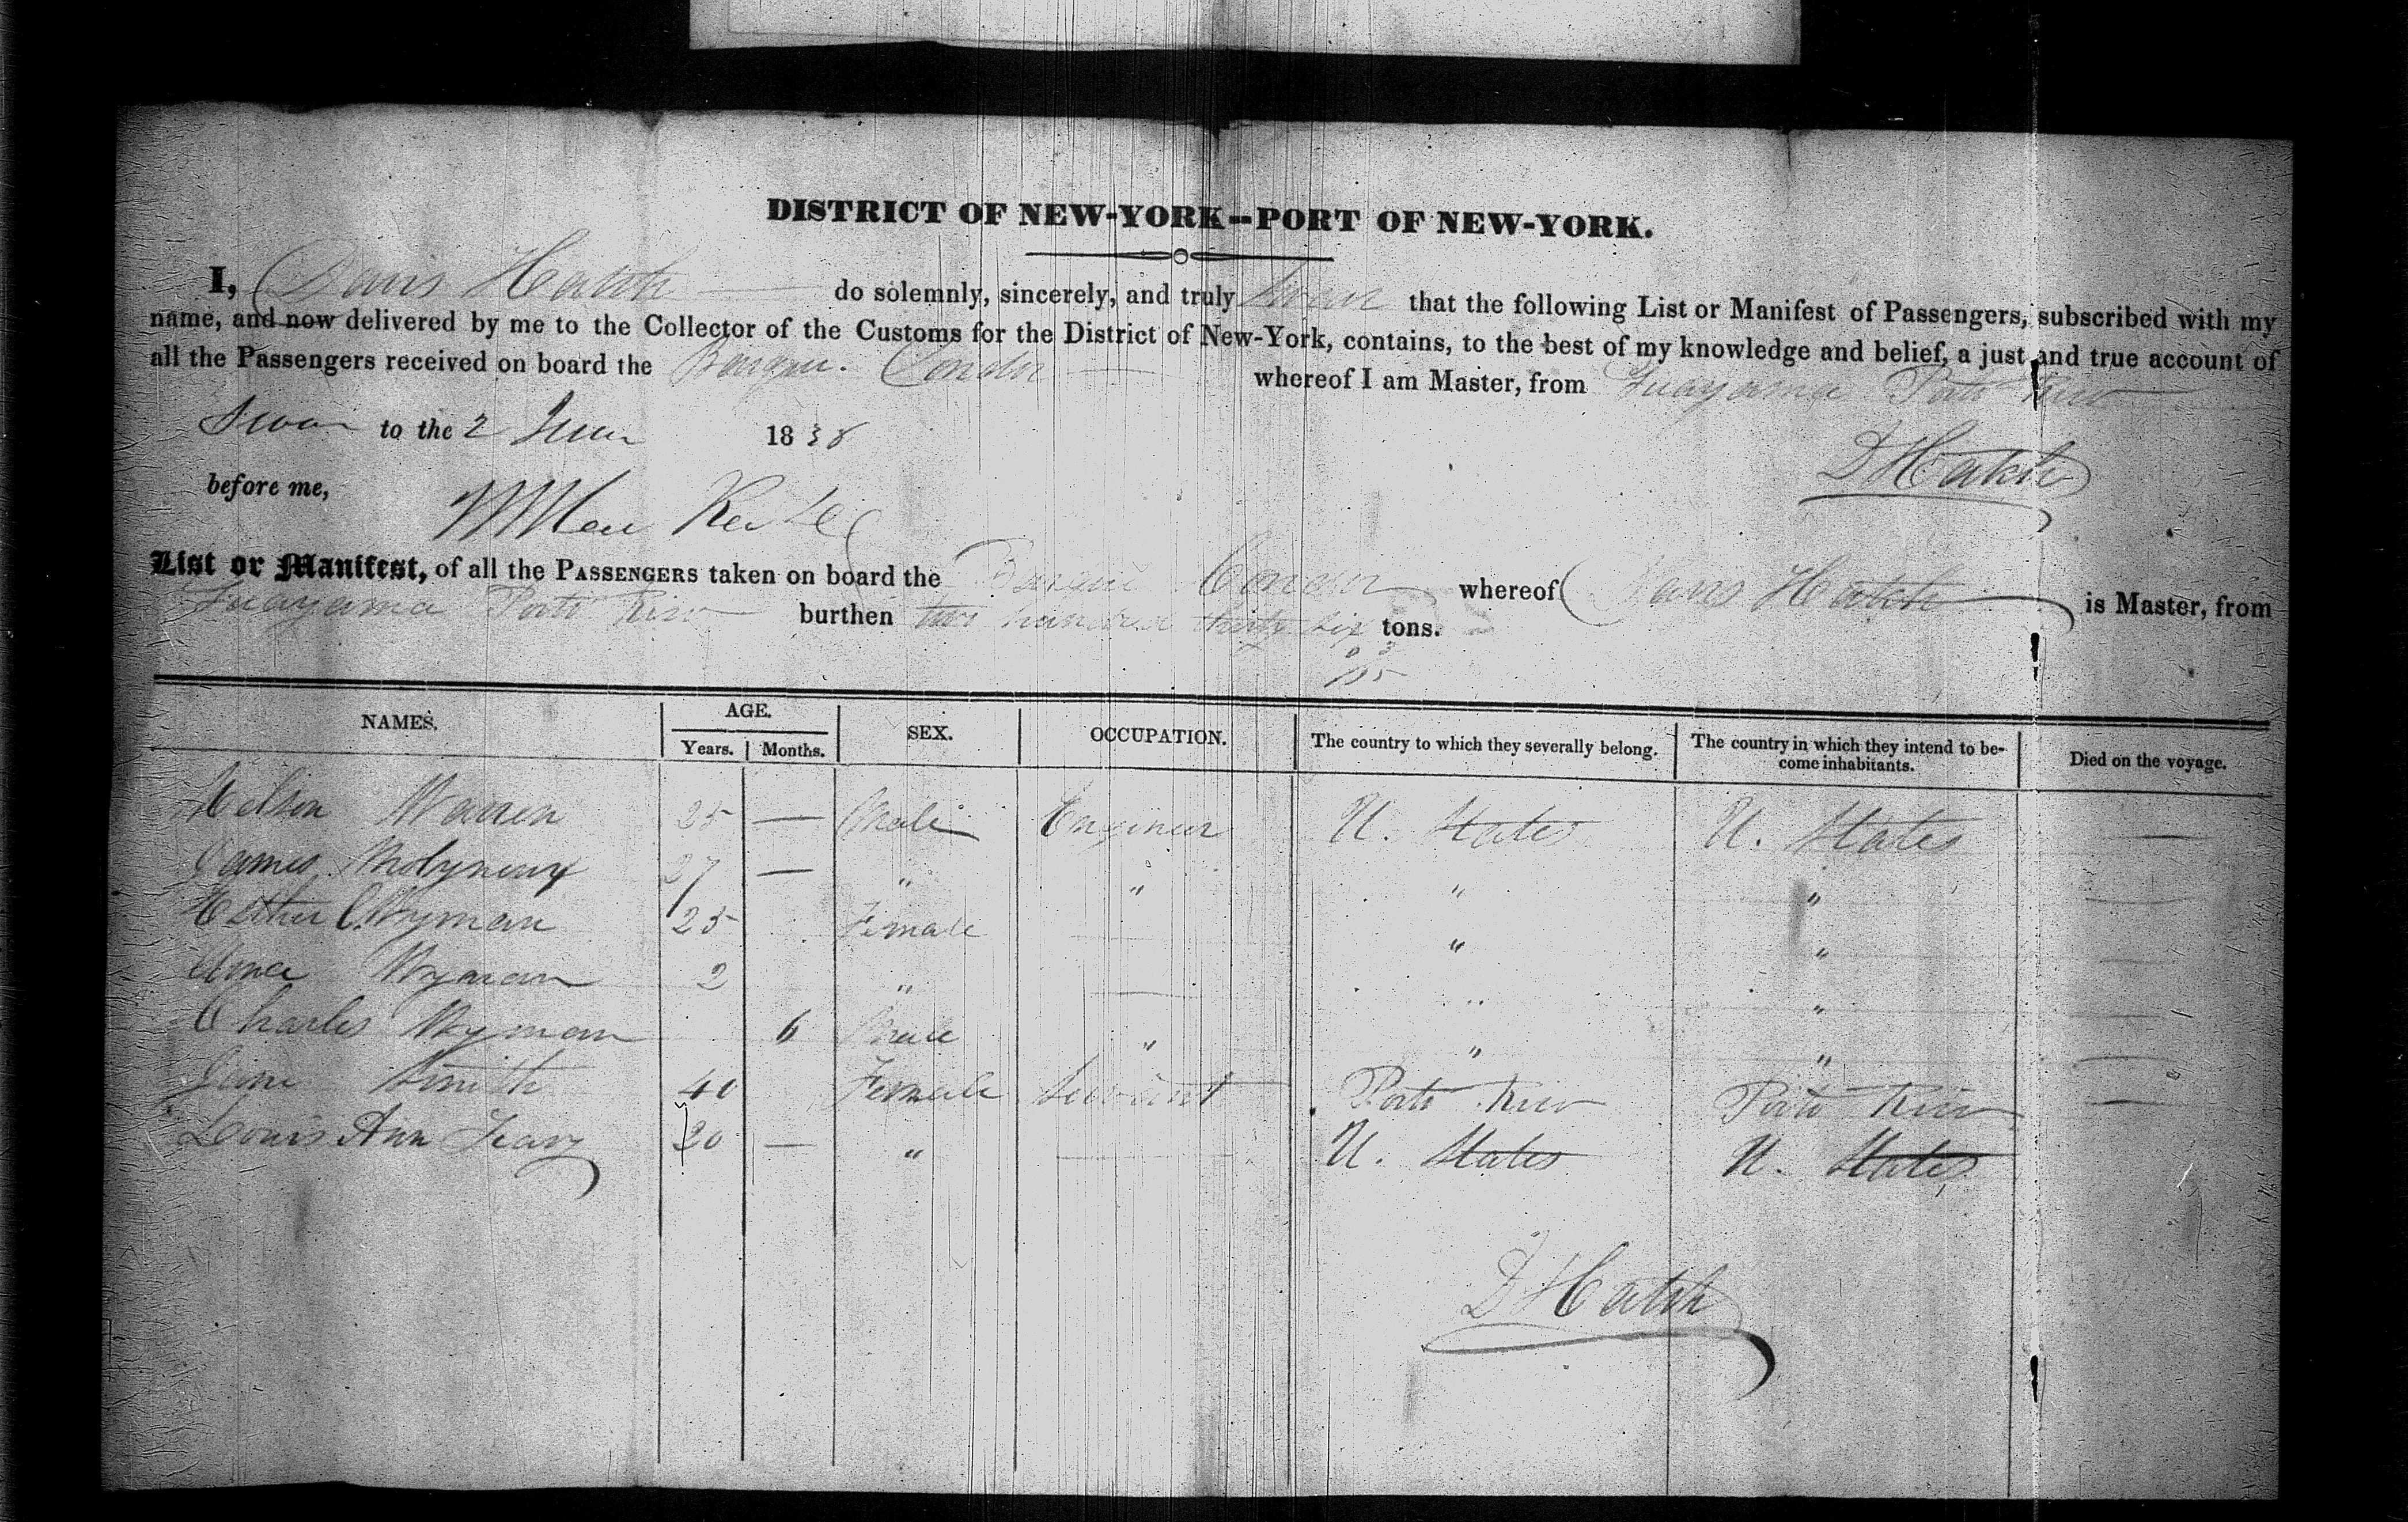 DISTRICT OF NEW-YORK--PORT OF NEW-YORK.
I, Davis Hatch do solemnly, sincerely, and truly Swear that the following List or Manifest of Passengers, subscribed with my
name, and now delivered by me to the Collector of the Customs for the District of New-York, contains, to the best of my knowledge and belief, a just and true account of
all the Passengers received on board the Barque Condor whereof I am Master, from Guayama Porto Rico
Sworn to the 2 June 1838
D Hatch
before me,
List or Manifest, of all the PASSENGERS taken on board the Barque Condor whereof Davis Hatch is Master, from
Guayama Porto Rico burthen two hundred thirty six tons.
95
NAMES. AGE. SEX. OCCUPATION. The country to which they severally belong. The country in which they intend to be- Died on the voyage.
Years. Months. come inhabitants.
Nelson Warren 25 — Male Engineer U. States U. States —
James Molyneux 27 — " " " " —
Hesther C. Wyman 25 Female — " " —
Anna Wyman 2 " — " " —
Charles Wyman 6 Male " " " —
Jane Smith 40 Female Servant Porto Rico Porto Rico —
Louis Ann 20 — " — U. States U. States
D Hatch